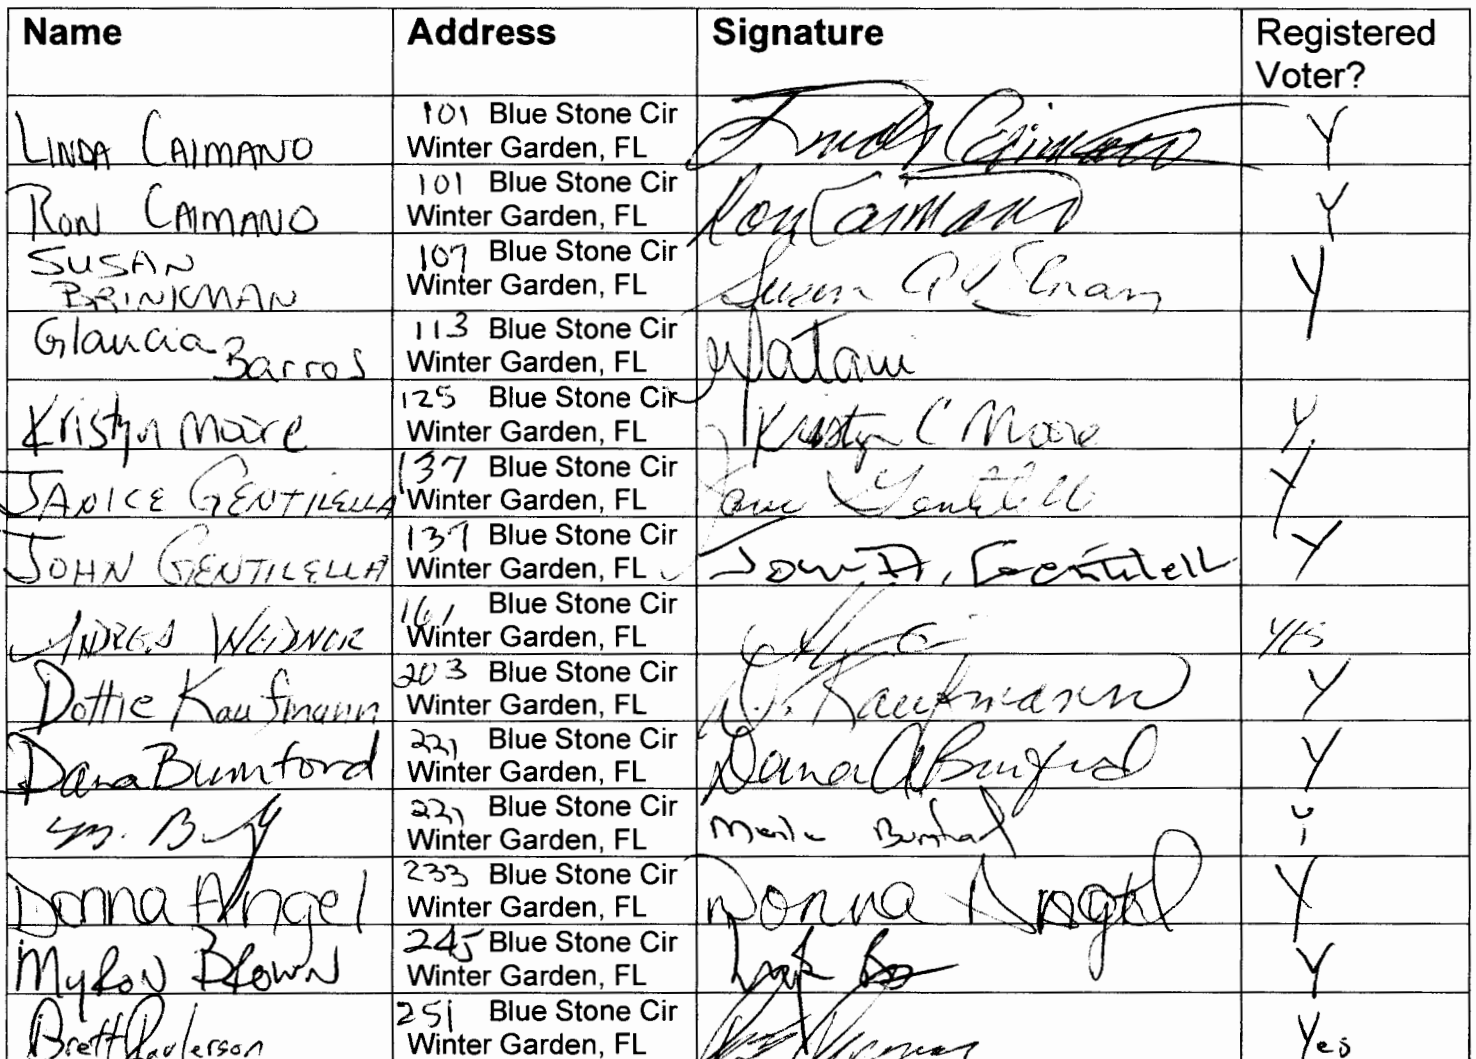 Name Address Signature Registered
Voter?
LINDA CAIMANO 101 Blue Stone Cir
Winter Garden, FL Linda Caimano Y
RON CAIMANO 101 Blue Stone Cir
Winter Garden, FL Ron Caimano Y
SUSAN 107 Blue Stone Cir
BRINKMAN Winter Garden, FL Susan Y
Glaucia 113 Blue Stone Cir
Barros Winter Garden, FL
Kristyn Moore 125 Blue Stone Cir
Winter Garden, FL Kristyn C Moore Y
JANICE GENTILELLA 137 Blue Stone Cir
Winter Garden, FL Y
JOHN GENTILELLA 137 Blue Stone Cir
Winter Garden, FL Y
WEIDNER 161 Blue Stone Cir
Winter Garden, FL yes
Dottie Kaufmann 203 Blue Stone Cir
Winter Garden, FL D. Kaufmann Y
Dana Bumford 221 Blue Stone Cir
Winter Garden, FL Dana A Bumford Y
M. 221 Blue Stone Cir
Winter Garden, FL Bumford
Donna Angel 233 Blue Stone Cir
Winter Garden, FL Donna Angel Y
Myron Brown 245 Blue Stone Cir
Winter Garden, FL Y
Brett 251 Blue Stone Cir
Winter Garden, FL Yes